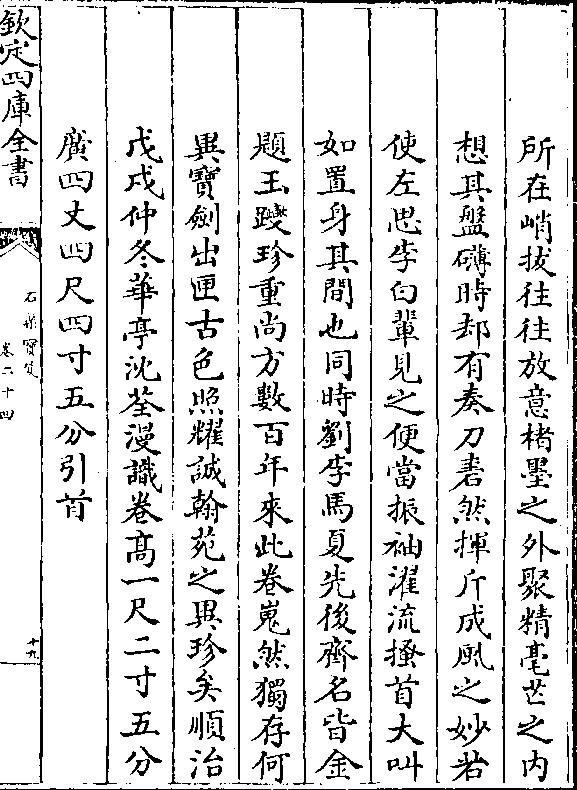 所在峭拔往往放意楮墨之外聚精毫芒之内
想其盤礴時却有奏刀砉然揮斤成風之妙若
使左思李白輩見之便當振袖濯流搔首大叫
如置身其間也同時劉李馬夏先後齊名皆金
題玉躞珍重尚方數百年來此卷嵬然獨存何
異寶劍出匣古色照耀誠翰苑之異珍矣順治
戊戌仲冬華亭沈荃漫識卷高一尺二寸五分
廣四丈四尺四寸五分引首
欽定四庫全書
石渠寶笈
卷二十四
十九